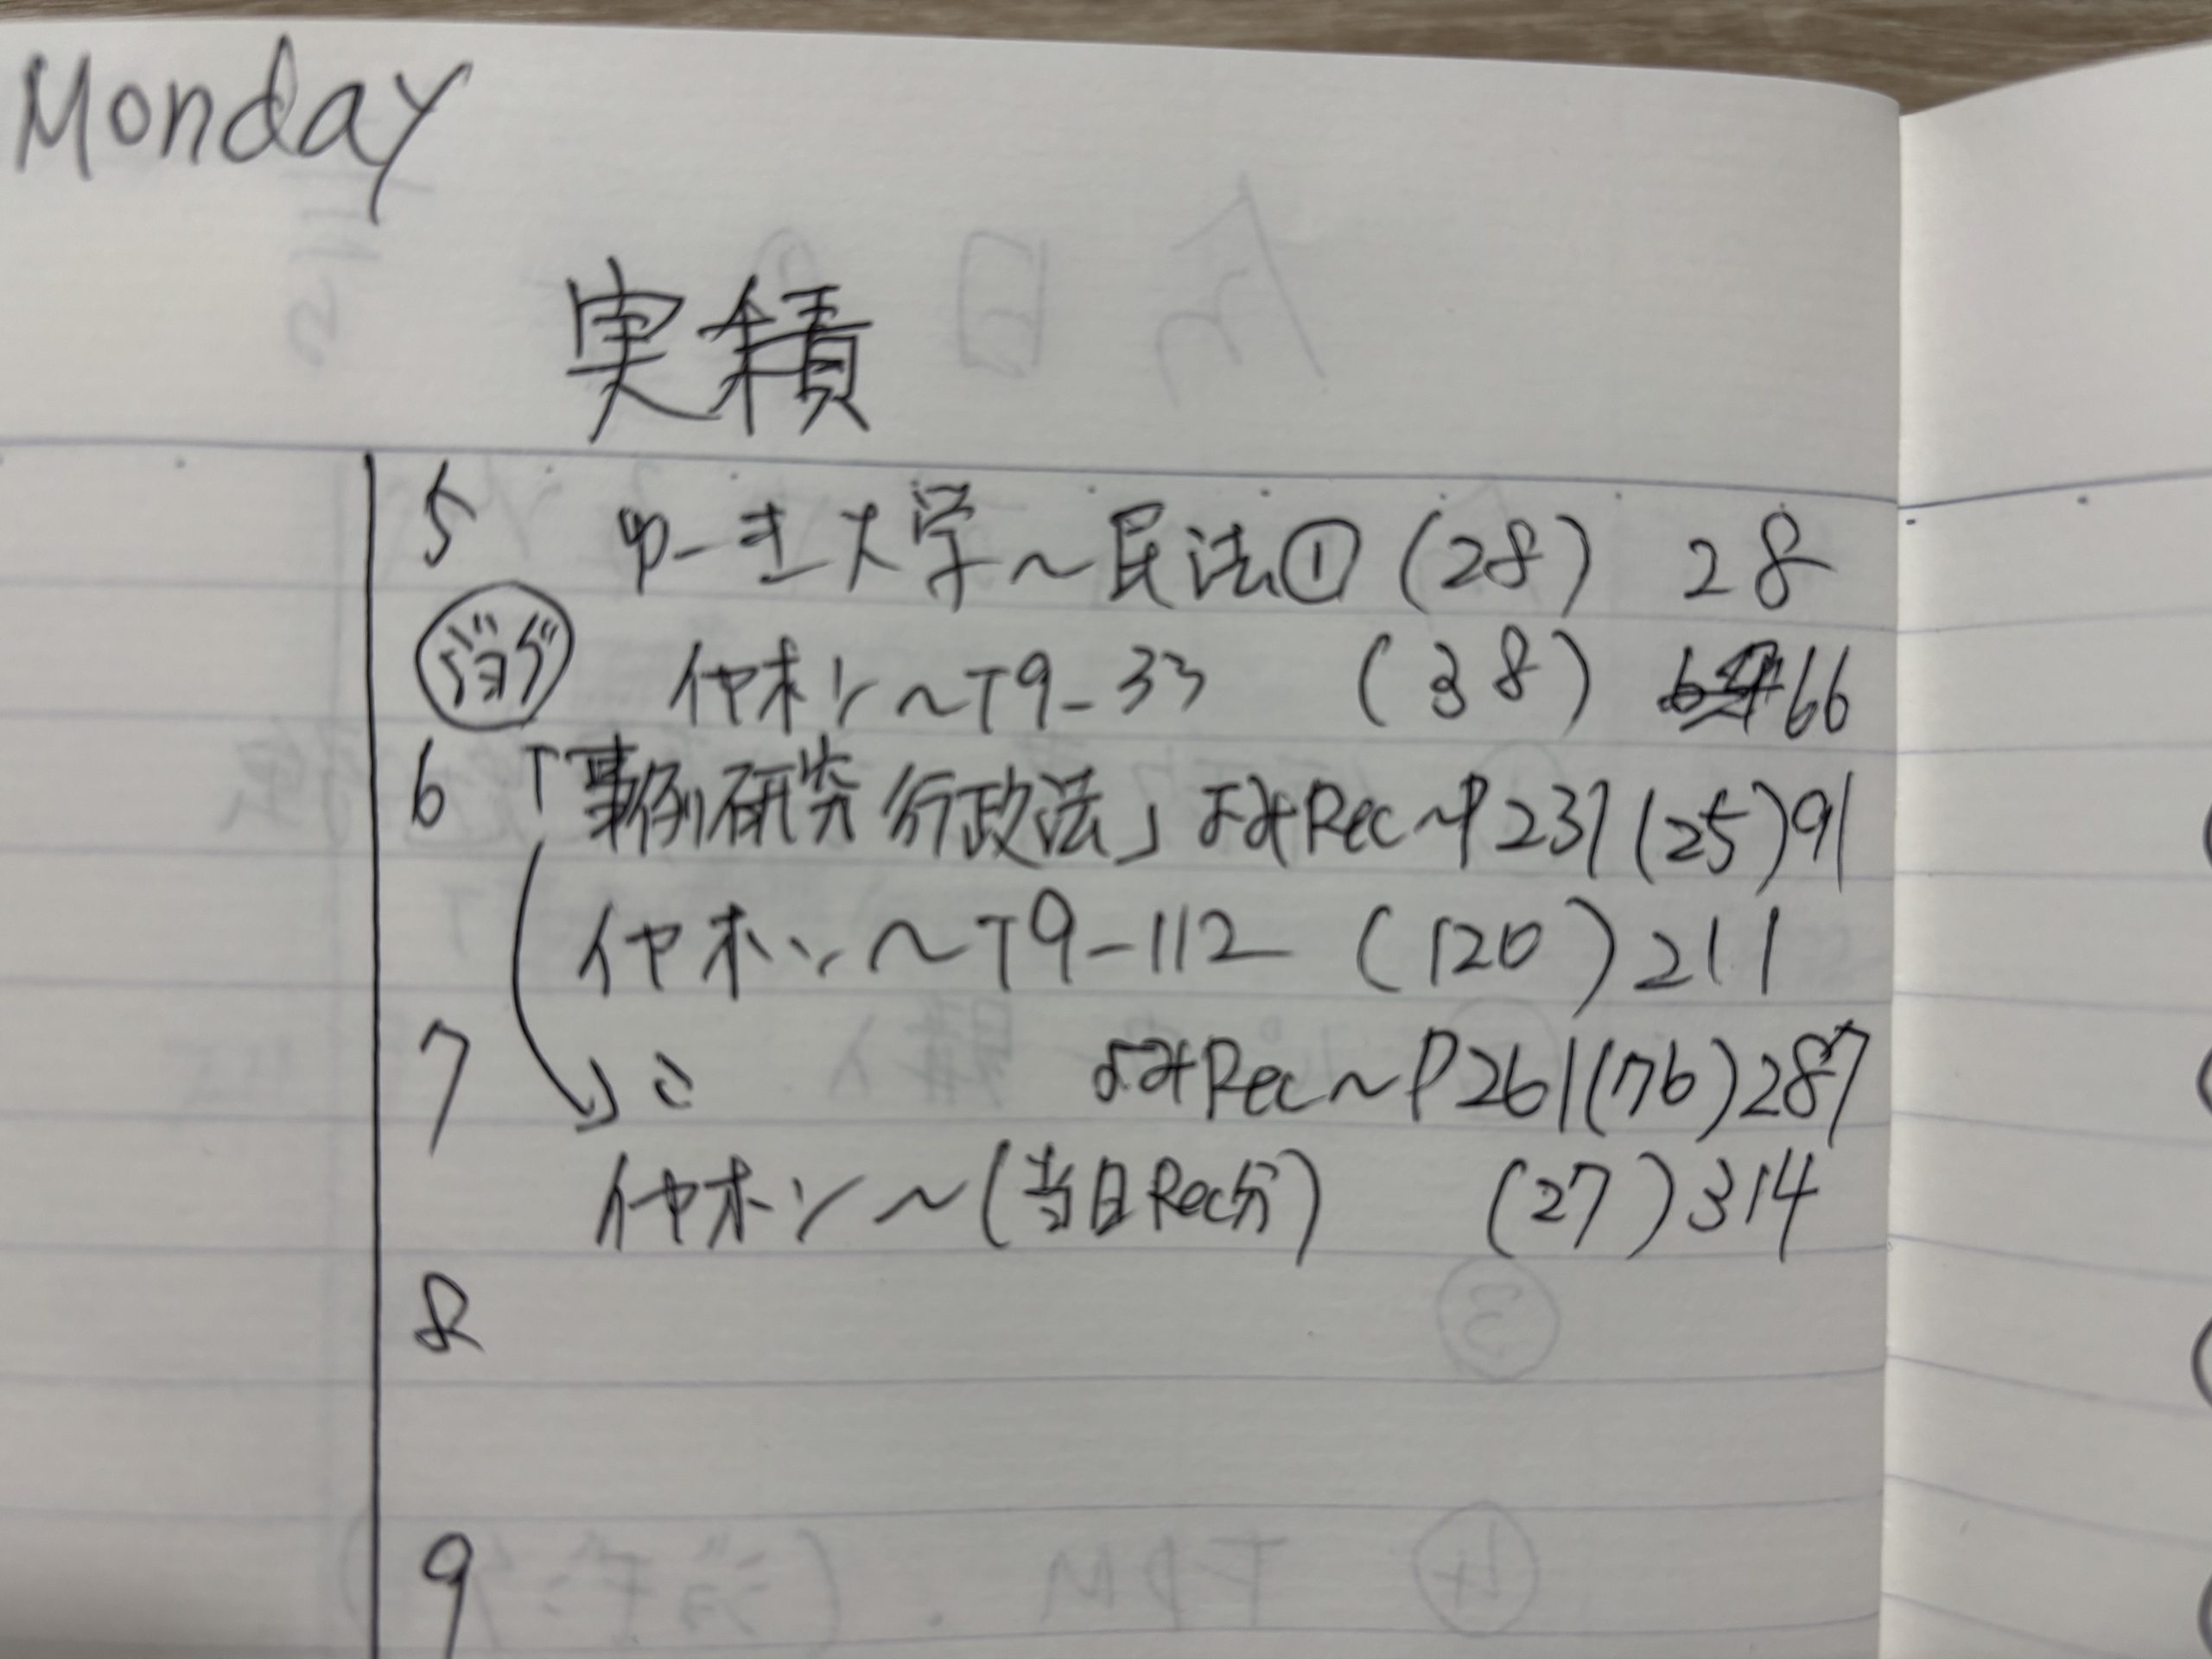 Monday
実績
5 ゆーき大学〜民法① (28) 28
ジョグ イヤホン〜T9-33 (38) 66
6 「事例研究 行政法」よみRec〜P237 (25) 91
イヤホン〜T9-112 (120) 211
7 よみRec〜P261 (76) 287
イヤホン〜(当日Rec分) (27) 314
8
9